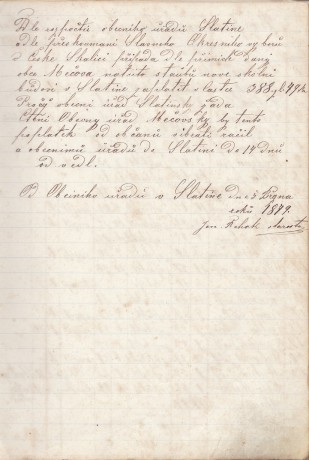 Dle rozpočtu obecního úřadu Slatine
dle přezkoumani Slavneho Okresniho vyboru
v České Skalici připada dle přimich dani
obce Mečova na tuto stavbu nove školni
budovi v Slatine zaplatit častce 388 zl 49 k
Pročež obecni úřad Slatinsky žada
Ctěni Obecny úřad Mečovsky by tento
poplatek od občanů vibrati račil
a obecnimu úřadu do Slatini do 14 dnů
od vedl.
Od Obecniho uřadu v Slatine dne 5 Října
roku 1879.
Jan Rehak starosta